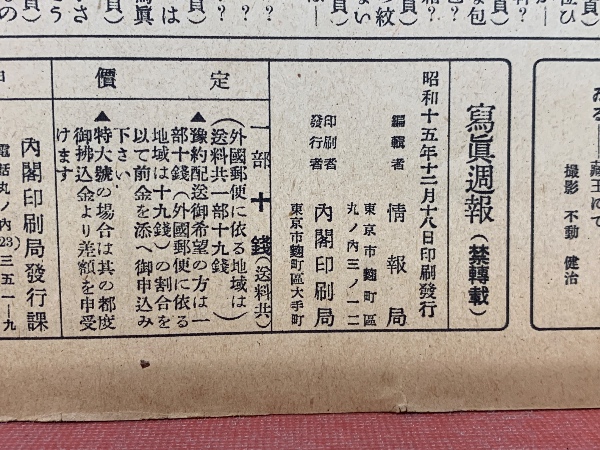 みる――藏王にて
撮影 不動 健治
寫眞週報(禁轉載)
昭和十五年十二月十八日印刷發行
編輯者 情報局
東京市麴町區
丸ノ内三ノ一二
印刷者
發行者
内閣印刷局
東京市麴町區大手町
定價
一部十錢(送料共)
(外國郵便に依る地域は)
(送料共一部十九錢)
▲豫約配送御希望の方は一
部十錢(外國郵便に依る
地域は十九錢)の割合を
以て前金を添へ御申込み
下さい
▲特大號の場合は其の都度
御拂込金より差額を申受
けます
内閣印刷局發行課
電話丸ノ内(23)三五一―九